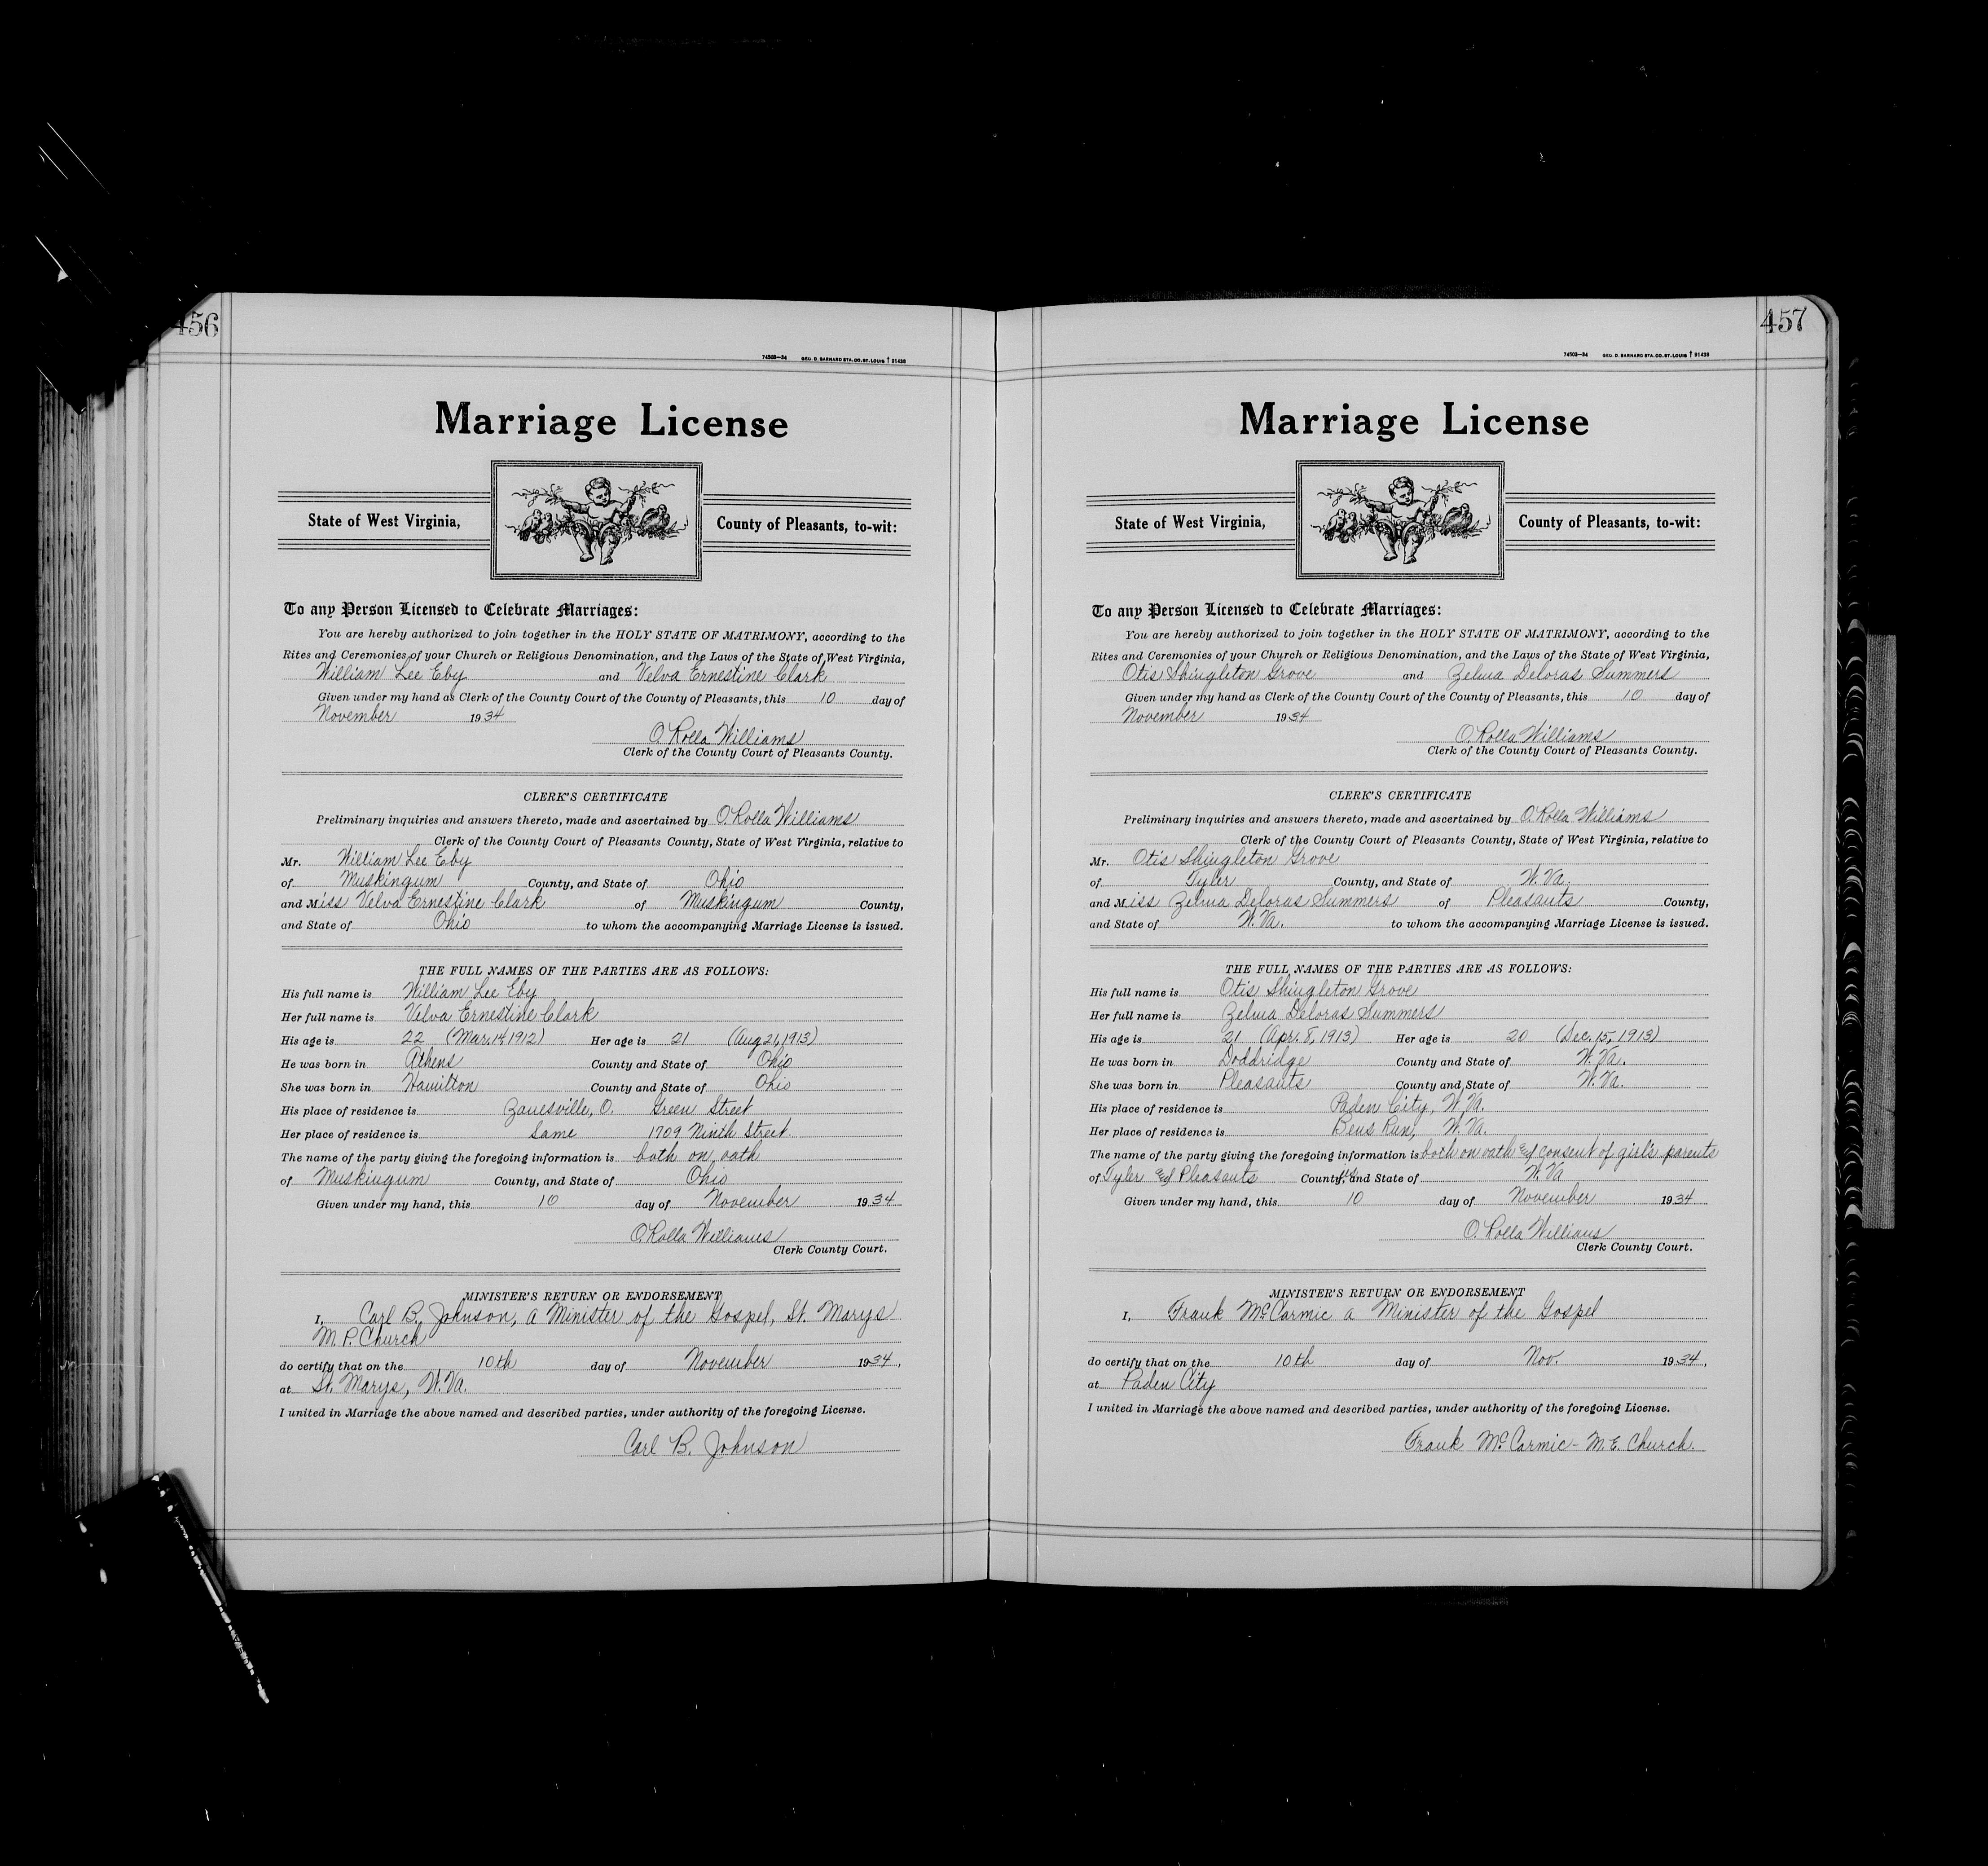 456
74503—34 GEO. D. BARNARD STA. CO. ST. LOUIS † 91438
Marriage License
State of West Virginia, County of Pleasants, to-wit:
To any Person Licensed to Celebrate Marriages:
You are hereby authorized to join together in the HOLY STATE OF MATRIMONY, according to the
Rites and Ceremonies of your Church or Religious Denomination, and the Laws of the State of West Virginia,
William Lee Eby and Velva Ernestine Clark
Given under my hand as Clerk of the County Court of the County of Pleasants, this 10 day of
November 1934
O. Rolla Williams
Clerk of the County Court of Pleasants County.
CLERK'S CERTIFICATE
Preliminary inquiries and answers thereto, made and ascertained by O. Rolla Williams
Clerk of the County Court of Pleasants County, State of West Virginia, relative to
Mr. William Lee Eby
of Muskingum County, and State of Ohio
and Miss Velva Ernestine Clark of Muskingum County,
and State of Ohio to whom the accompanying Marriage License is issued.
THE FULL NAMES OF THE PARTIES ARE AS FOLLOWS:
His full name is William Lee Eby
Her full name is Velva Ernestine Clark
His age is 22 (Mar. 14 1912) Her age is 21 (Aug 21, 1913)
He was born in Athens County and State of Ohio
She was born in Hamilton County and State of Ohio
His place of residence is Zanesville, O. Green Street
Her place of residence is Same 1709 Ninth Street.
The name of the party giving the foregoing information is both on oath
of Muskingum County, and State of Ohio
Given under my hand, this 10 day of November 1934
O. Rolla Williams
Clerk County Court.
MINISTER'S RETURN OR ENDORSEMENT
I, Carl B. Johnson, a Minister of the Gospel, St. Marys
M. P. Church
do certify that on the 10th day of November 1934,
at St. Marys, W. Va.
I united in Marriage the above named and described parties, under authority of the foregoing License.
Carl B. Johnson
457
74503—34 GEO. D. BARNARD STA. CO. ST. LOUIS † 91438
Marriage License
State of West Virginia, County of Pleasants, to-wit:
To any Person Licensed to Celebrate Marriages:
You are hereby authorized to join together in the HOLY STATE OF MATRIMONY, according to the
Rites and Ceremonies of your Church or Religious Denomination, and the Laws of the State of West Virginia,
Otis Shingleton Grove and Zelma Deloras Summers
Given under my hand as Clerk of the County Court of the County of Pleasants, this 10 day of
November 1934
O. Rolla Williams
Clerk of the County Court of Pleasants County.
CLERK'S CERTIFICATE
Preliminary inquiries and answers thereto, made and ascertained by O. Rolla Williams
Clerk of the County Court of Pleasants County, State of West Virginia, relative to
Mr. Otis Shingleton Grove
of Tyler County, and State of W. Va.
and Miss Zelma Deloras Summers of Pleasants County,
and State of W. Va. to whom the accompanying Marriage License is issued.
THE FULL NAMES OF THE PARTIES ARE AS FOLLOWS:
His full name is Otis Shingleton Grove
Her full name is Zelma Deloras Summers
His age is 21 (Apr. 8, 1913) Her age is 20 (Dec. 15, 1913)
He was born in Doddridge County and State of W. Va.
She was born in Pleasants County and State of W. Va.
His place of residence is Paden City, W. Va.
Her place of residence is Bens Run, W. Va.
The name of the party giving the foregoing information is both on oath & consent of girl's parents
of Tyler & Pleasants County, and State of W. Va
Given under my hand, this 10 day of November 1934
O. Rolla Williams
Clerk County Court.
MINISTER'S RETURN OR ENDORSEMENT
I, Frank McCarmic a Minister of the Gospel
do certify that on the 10th day of Nov. 1934,
at Paden City
I united in Marriage the above named and described parties, under authority of the foregoing License.
Frank McCarmic - M. E. Church.